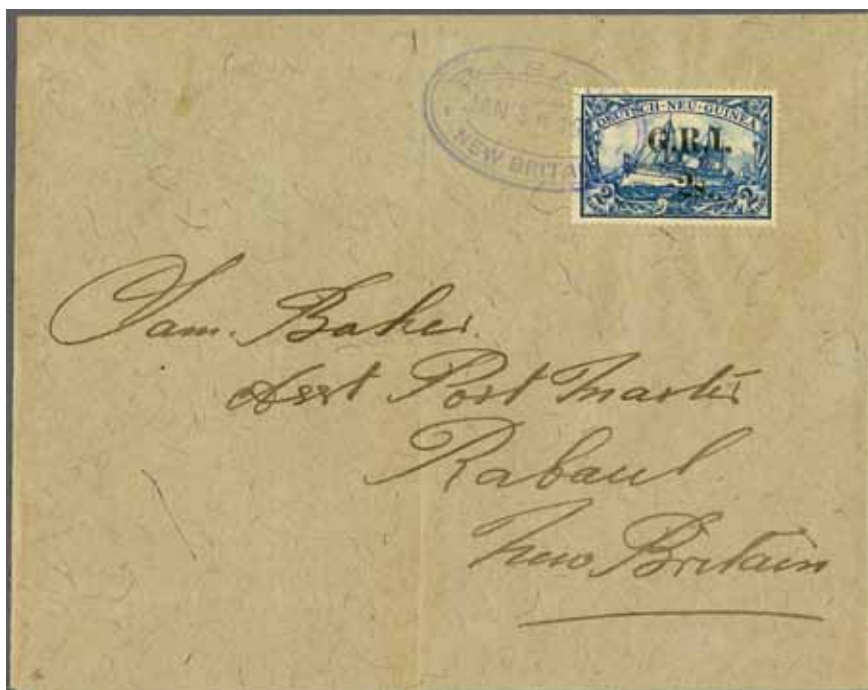 RABAUL
JAN 3
NEW BRITAIN
DEUTSCH-NEU-GUINEA
G.R.I.
2s.
2 2
Sam. Baker.
Asst Post Master
Rabaul
New Britain